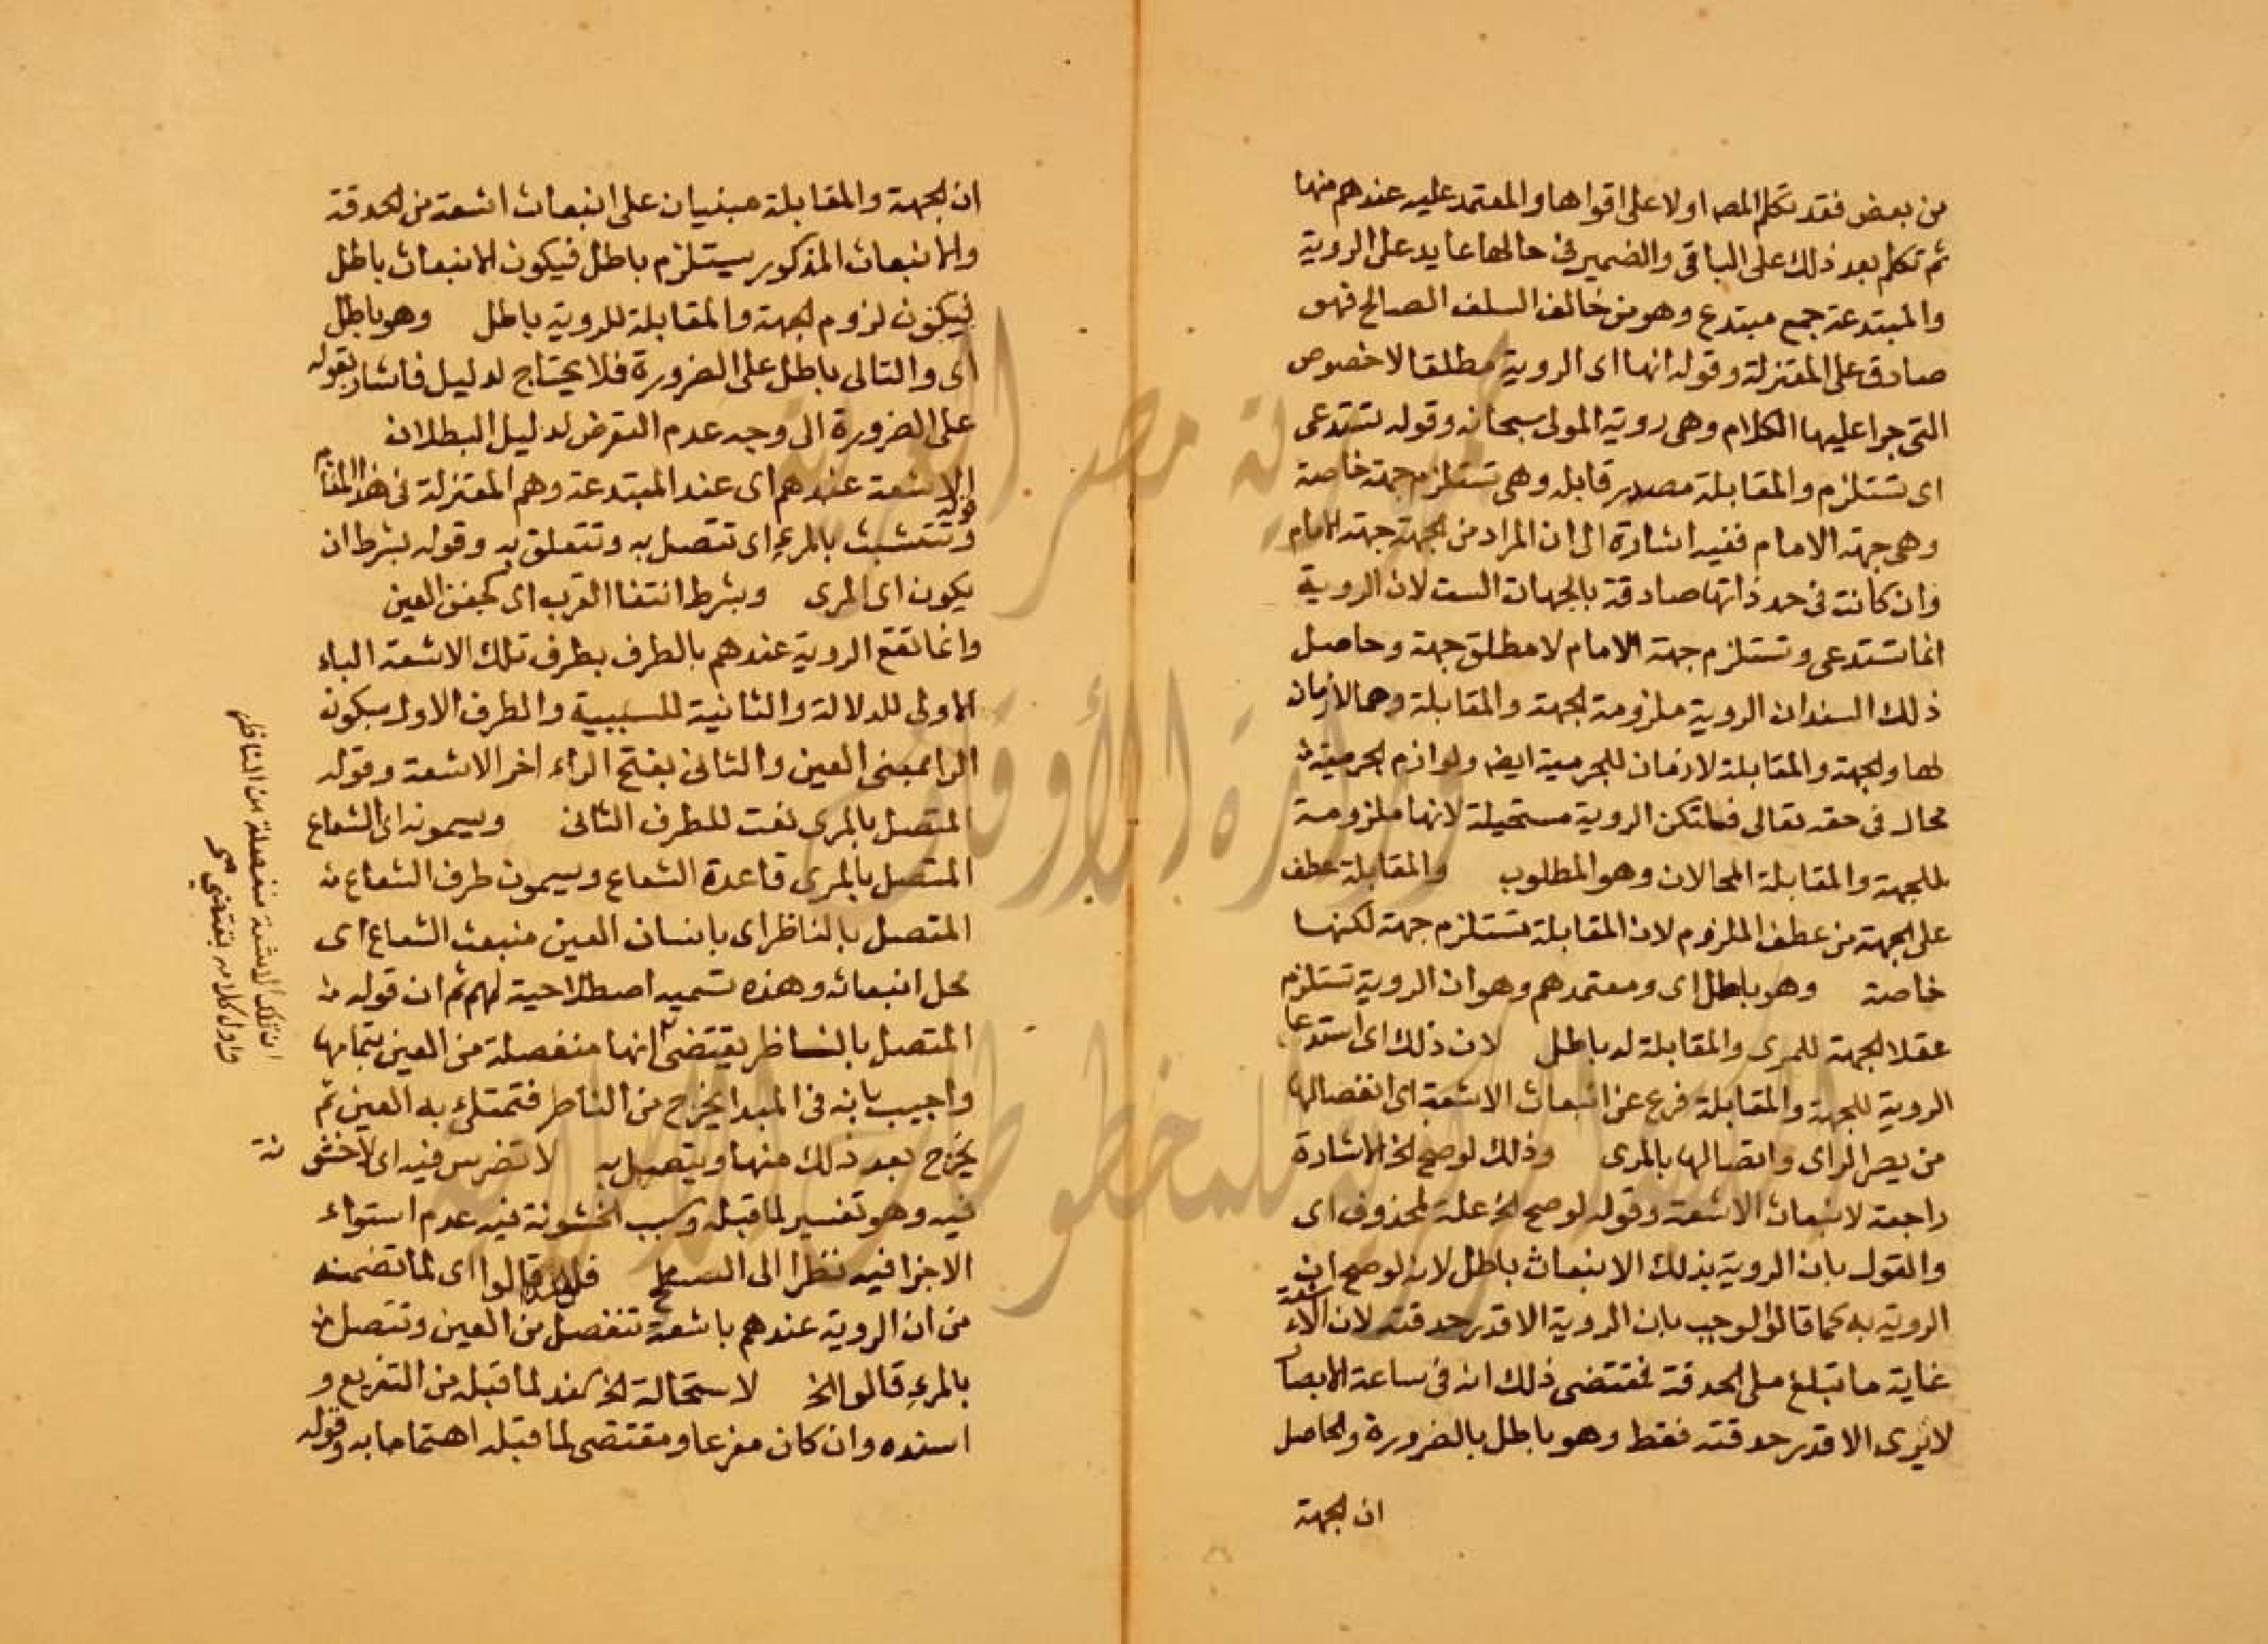 من بعض فقد تكلم المص اولا على اقواها والمعتمد عليه عندهم منها
ثم تكلم بعد ذلك على الباقي والضمير في حالها عايد على الروية
والمبتدعة جمع مبتدع وهو من خالف السلف الصالح فهو
صادق على المعتزلة وقوله انها اى الروية مطلقا لا خصوص
التي جرا عليها الكلام وهى روية المولى سبحانه وقوله تستدعى
اى تستلزم والمقابلة مصدر قابل وهى تستلزم جهة خاصة
وهى جهة الامام ففيه اشارة الى ان المراد من الجهة جهة الامام
وان كانت فى حد ذاتها صادقة بالجهات الست لان الروية
انما تستدعى وتستلزم جهة الامام لا مطلق جهة وحاصل
ذلك السند ان الروية ملزومة لجهة والمقابلة وهما لازمان
لها والجهة والمقابلة لازمان للجرمية ايضا ولوازم الجرمية
محال فى حقه تعالى فلتكن الروية مستحيلة لانها ملزومة
للجهة والمقابلة المحالان وهو المطلوب والمقابلة عطف
على الجهة من عطف الملزوم لان المقابلة تستلزم جهة لكنها
خاصة وهو باطل اى ومعتمدهم وهو ان الروية تستلزم
عقلا الجهة للمرى والمقابلة له باطل لان ذلك اى استدعا
الروية للجهة والمقابلة فرع عن انبعاث الاشعة اى انفصالها
من بصر الراى واتصالها بالمرى وذلك لو صح الخ الاشارة
راجعة لانبعاث الاشعة وقوله لو صح الخ علة لمحذوف اى
والقول بان الروية بذلك الانبعاث باطل لانه لو صح ان
الروية به كما قالوا لوجب بان الروية الا قدر حدقته لان الاشعة
غاية ما تبلغ ملى الحدقة فمقتضى ذلك انه فى ساعة الابصا
لا يرى الا قدر حدقته فقط وهو باطل بالضرورة والحاصل
ان الجهة
ان الجهة والمقابلة مبنيان على انبعاث اشعة من الحدقة
والانبعاث المذكور يستلزم باطل فيكون الانبعاث باطل
فيكون لزوم الجهة والمقابلة للروية باطل وهو باطل
اى والتالى باطل على الضرورة فلا يحتاج لدليل فاشار بقوله
على الضرورة الى وجه عدم التعرض لدليل البطلان
الاشعة عندهم اى عند المبتدعة وهم المعتزلة فى هذا المقام
قوله وتتشبث بالمرء اى تتصل به وتتعلق به وقوله بشرط ان
يكون اى المرى وبشرط انتفا القرب اى كجفن العين
وانما تقع الروية عندهم بالطرف بطرف تلك الاشعة الباء
الاولى للدلالة والثانية للسببية والطرف الاول بسكون
الرا بمعنى العين والثانى بفتح الراء اخر الاشعة وقوله
المتصل بالمرى نعت للطرف الثانى ويسمونه اى الشعاع
المتصل بالمرى قاعدة الشعاع ويسمون طرف الشعاع
المتصل بالناظر اى بانسان العين منبعث الشعاع اى
محل انبعاثه وهذه تسمية اصطلاحية لهم ثم ان قوله
المتصل بالناظر يقتضى انها منفصلة من العين بتمامها
واجيب بانه فى المبدا يخرج من الناظر فتمتلء به العين ثم
يخرج بعد ذلك منها ويتصل به لا تضريس فيه اى لا خشو
نة
فيه وهو تفسير لما قبله وسبب الخشونة فيه عدم استواء
الاجزا فيه نظرا الى السطح قالوا اى لما تضمنه
من ان الروية عندهم باشعة تنفصل من العين وتتصل
بالمرء قالوا الخ لاستحالة الخ سند لما قبله من التفريع و
اسنده وان كان مفرعا ومقتضى لما قبله اهتماما به وقوله
ان تلك الاشعة منفصلة من الناظر
واول كلامه يقتضى
جمهورية مصر العربية
وزارة الأوقاف
المكتبة المركزية للمخطوطات الإسلامية